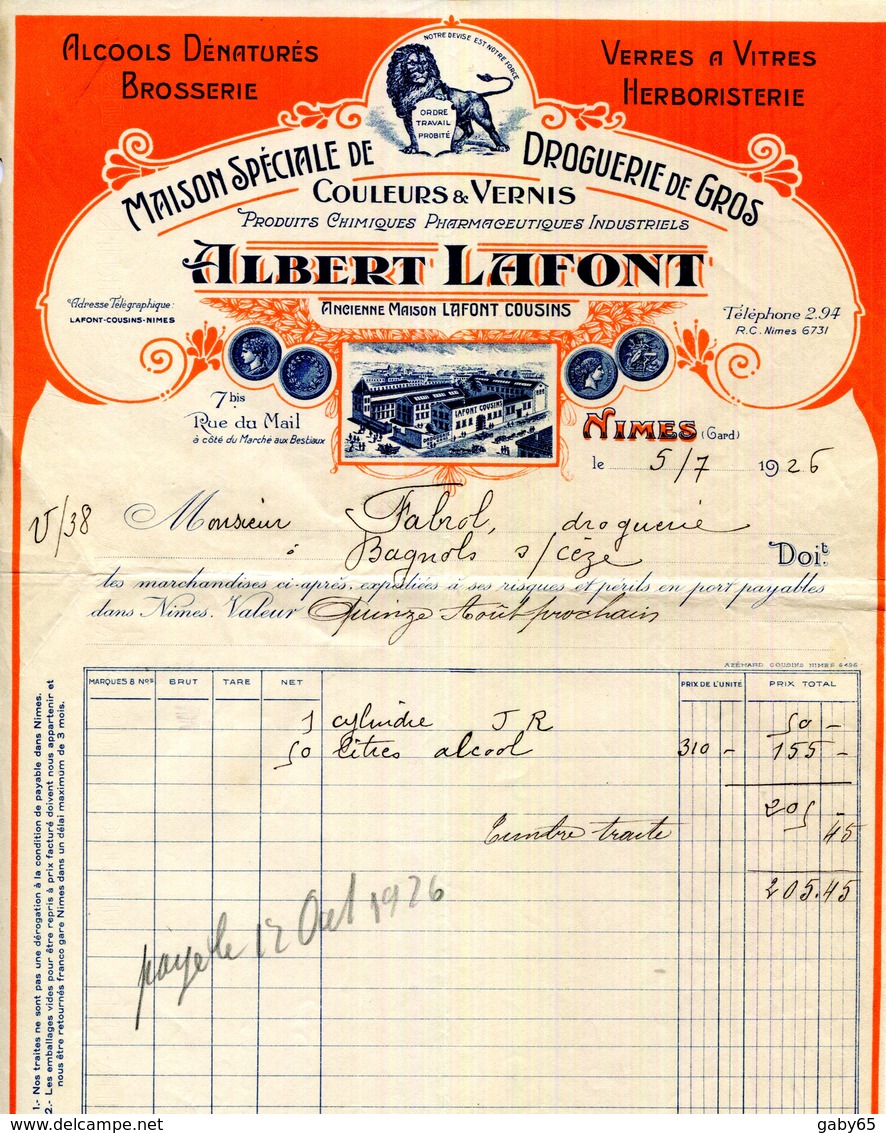 ALCOOLS DÉNATURÉS
BROSSERIE
NOTRE DEVISE EST NOTRE FORCE
ORDRE
TRAVAIL
PROBITÉ
VERRES A VITRES
HERBORISTERIE
MAISON SPÉCIALE DE DROGUERIE DE GROS
COULEURS & VERNIS
PRODUITS CHIMIQUES PHARMACEUTIQUES INDUSTRIELS
ALBERT LAFONT
ANCIENNE MAISON LAFONT COUSINS
Adresse Télégraphique:
LAFONT-COUSINS-NIMES
Téléphone 2.94
R.C. Nimes 6731
LAFONT COUSINS
7 bis
Rue du Mail
à côté du Marché aux Bestiaux
NIMES (Gard)
le 5/7 1926
V/38
Monsieur Fabrol, droguerie
à Bagnols s/Cèze Doit
les marchandises ci-après, expédiées à ses risques et périls en port payables
dans Nimes. Valeur Quinze Août prochain
AZÉMARD COUSINS NIMES 6496
MARQUES & Nos BRUT TARE NET PRIX DE L'UNITÉ PRIX TOTAL
1 cylindre J R 50 -
50 litres alcool 310 - 155 -
205 -
Timbre traite 45
205.45
payé le 12 Oct 1926
1.- Nos traites ne sont pas une dérogation à la condition de payable dans Nimes.
2.- Les emballages vides pour être repris à prix facturé doivent nous appartenir et
nous être retournés franco gare Nimes dans un délai maximum de 3 mois.
delcampe.net
gaby65